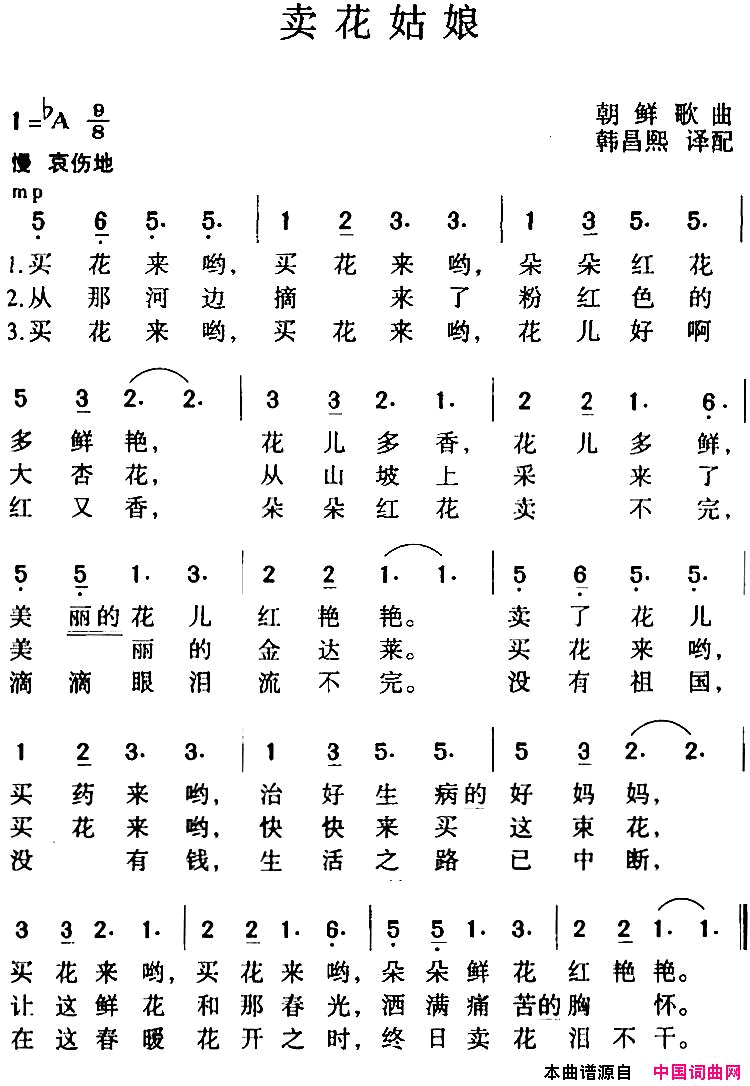 卖花姑娘
1=♭A 9/8
朝鲜歌曲
韩昌熙 译配
慢 哀伤地
mp
5 6 5. 5. | 1 2 3. 3. | 1 3 5. 5.
1.买花来哟，买花来哟，朵朵红花
2.从那河边摘来了粉红色的
3.买花来哟，买花来哟，花儿好啊
5 3 2. 2. | 3 3 2. 1. | 2 2 1. 6.
多鲜艳，花儿多香，花儿多鲜，
大杏花，从山坡上采来了
红又香，朵朵红花卖不完，
5 5 1. 3. | 2 2 1. 1. | 5 6 5. 5.
美丽的花儿红艳艳。卖了花儿
美丽的金达莱。买花来哟，
滴滴眼泪流不完。没有祖国，
1 2 3. 3. | 1 3 5. 5. | 5 3 2. 2.
买药来哟，治好生病的好妈妈，
买花来哟，快快来买这束花，
没有钱，生活之路已中断，
3 3 2. 1. | 2 2 1. 6. | 5 5 1. 3. | 2 2 1. 1. ‖
买花来哟，买花来哟，朵朵鲜花红艳艳。
让这鲜花和那春光，洒满痛苦的胸怀。
在这春暖花开之时，终日卖花泪不干。
本曲谱源自 中国词曲网